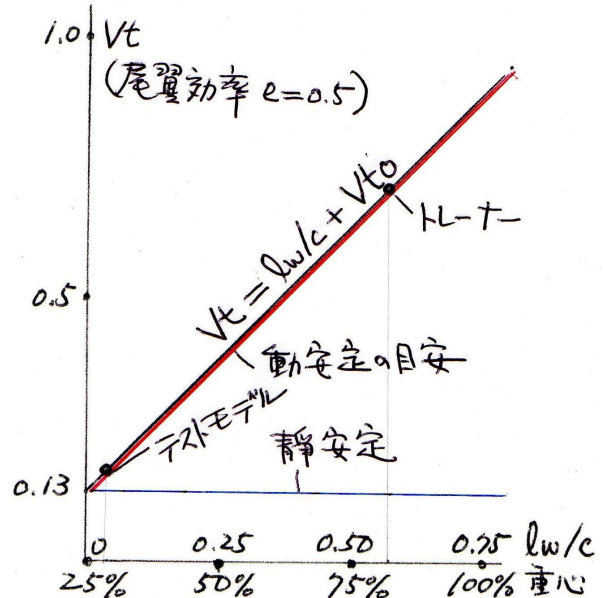 1.0 Vt
(尾翼効率 e=0.5)
Vt = lw/c + Vto
トレーナー
0.5
動安定の目安
テストモデル
静安定
0.13
0 0.25 0.50 0.75 lw/c
25% 50% 75% 100% 重心